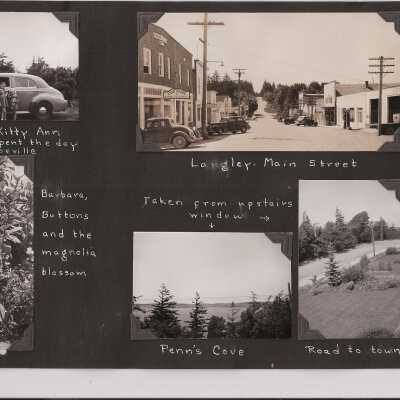 Kitty Ann
spent the day
eville
Langley - Main Street
Barbara,
Buttons
and the
magnolia
blossom
Taken from upstairs
window →
↓
Penn's Cove
Road to town